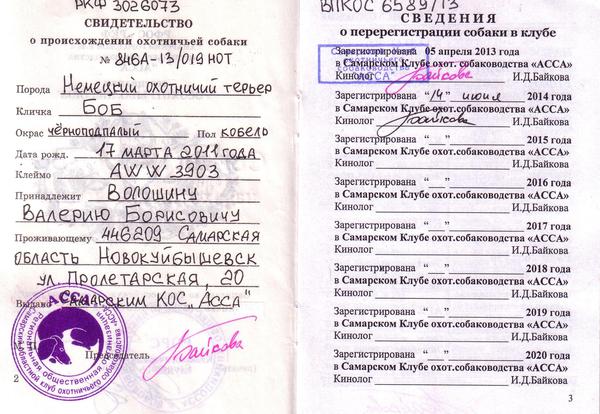 РКФ 3026073
СВИДЕТЕЛЬСТВО
о происхождении охотничьей собаки
№ 846А-13/019НОТ
Порода Немецкий охотничий терьер
Кличка БОБ
Окрас чёрноподпалый Пол кобель
Дата рожд. 17 марта 2011 года
Клеймо AWW 3903
Принадлежит Волошину
Валерию Борисовичу
Проживающему 446209 Самарская
область Новокуйбышевск
ул. Пролетарская, 20
Выдано Самарским КОС „Асса"
Председатель Байкова
АССА
Региональная общественная организация
Самарский областной клуб охотничьего собаководства «АССА»
2
ВПКОС 6589/13
СВЕДЕНИЯ
о перерегистрации собаки в клубе
Зарегистрирована 05 апреля 2013 года
в Самарском Клубе охот. собаководства «АССА»
Кинолог Байкова И.Д.Байкова
охотничьего
собаководства
"АССА"
Зарегистрирована "14" июня 2014 года
в Самарском Клубе охот.собаководства «АССА»
Кинолог Байкова И.Д.Байкова
Зарегистрирована "__" ______ 2015 года
в Самарском Клубе охот.собаководства «АССА»
Кинолог ______ И.Д.Байкова
Зарегистрирована "__" ______ 2016 года
в Самарском Клубе охот.собаководства «АССА»
Кинолог ______ И.Д.Байкова
Зарегистрирована "__" ______ 2017 года
в Самарском Клубе охот.собаководства «АССА»
Кинолог ______ И.Д.Байкова
Зарегистрирована "__" ______ 2018 года
в Самарском Клубе охот.собаководства «АССА»
Кинолог ______ И.Д.Байкова
Зарегистрирована "__" ______ 2019 года
в Самарском Клубе охот.собаководства «АССА»
Кинолог ______ И.Д.Байкова
Зарегистрирована "__" ______ 2020 года
в Самарском Клубе охот.собаководства «АССА»
Кинолог ______ И.Д.Байкова
3